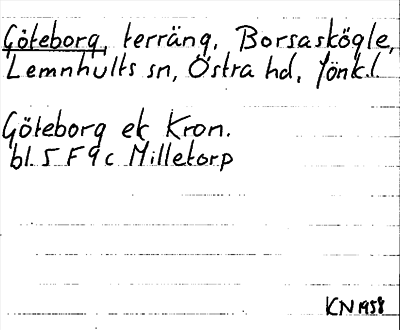 Göteborg, terräng, Borsaskögle,
Lemnhults sn, Östra hd, Jönk.l.
Göteborg ek Kron.
bl. 5 F 9 c Milletorp
KN 1958